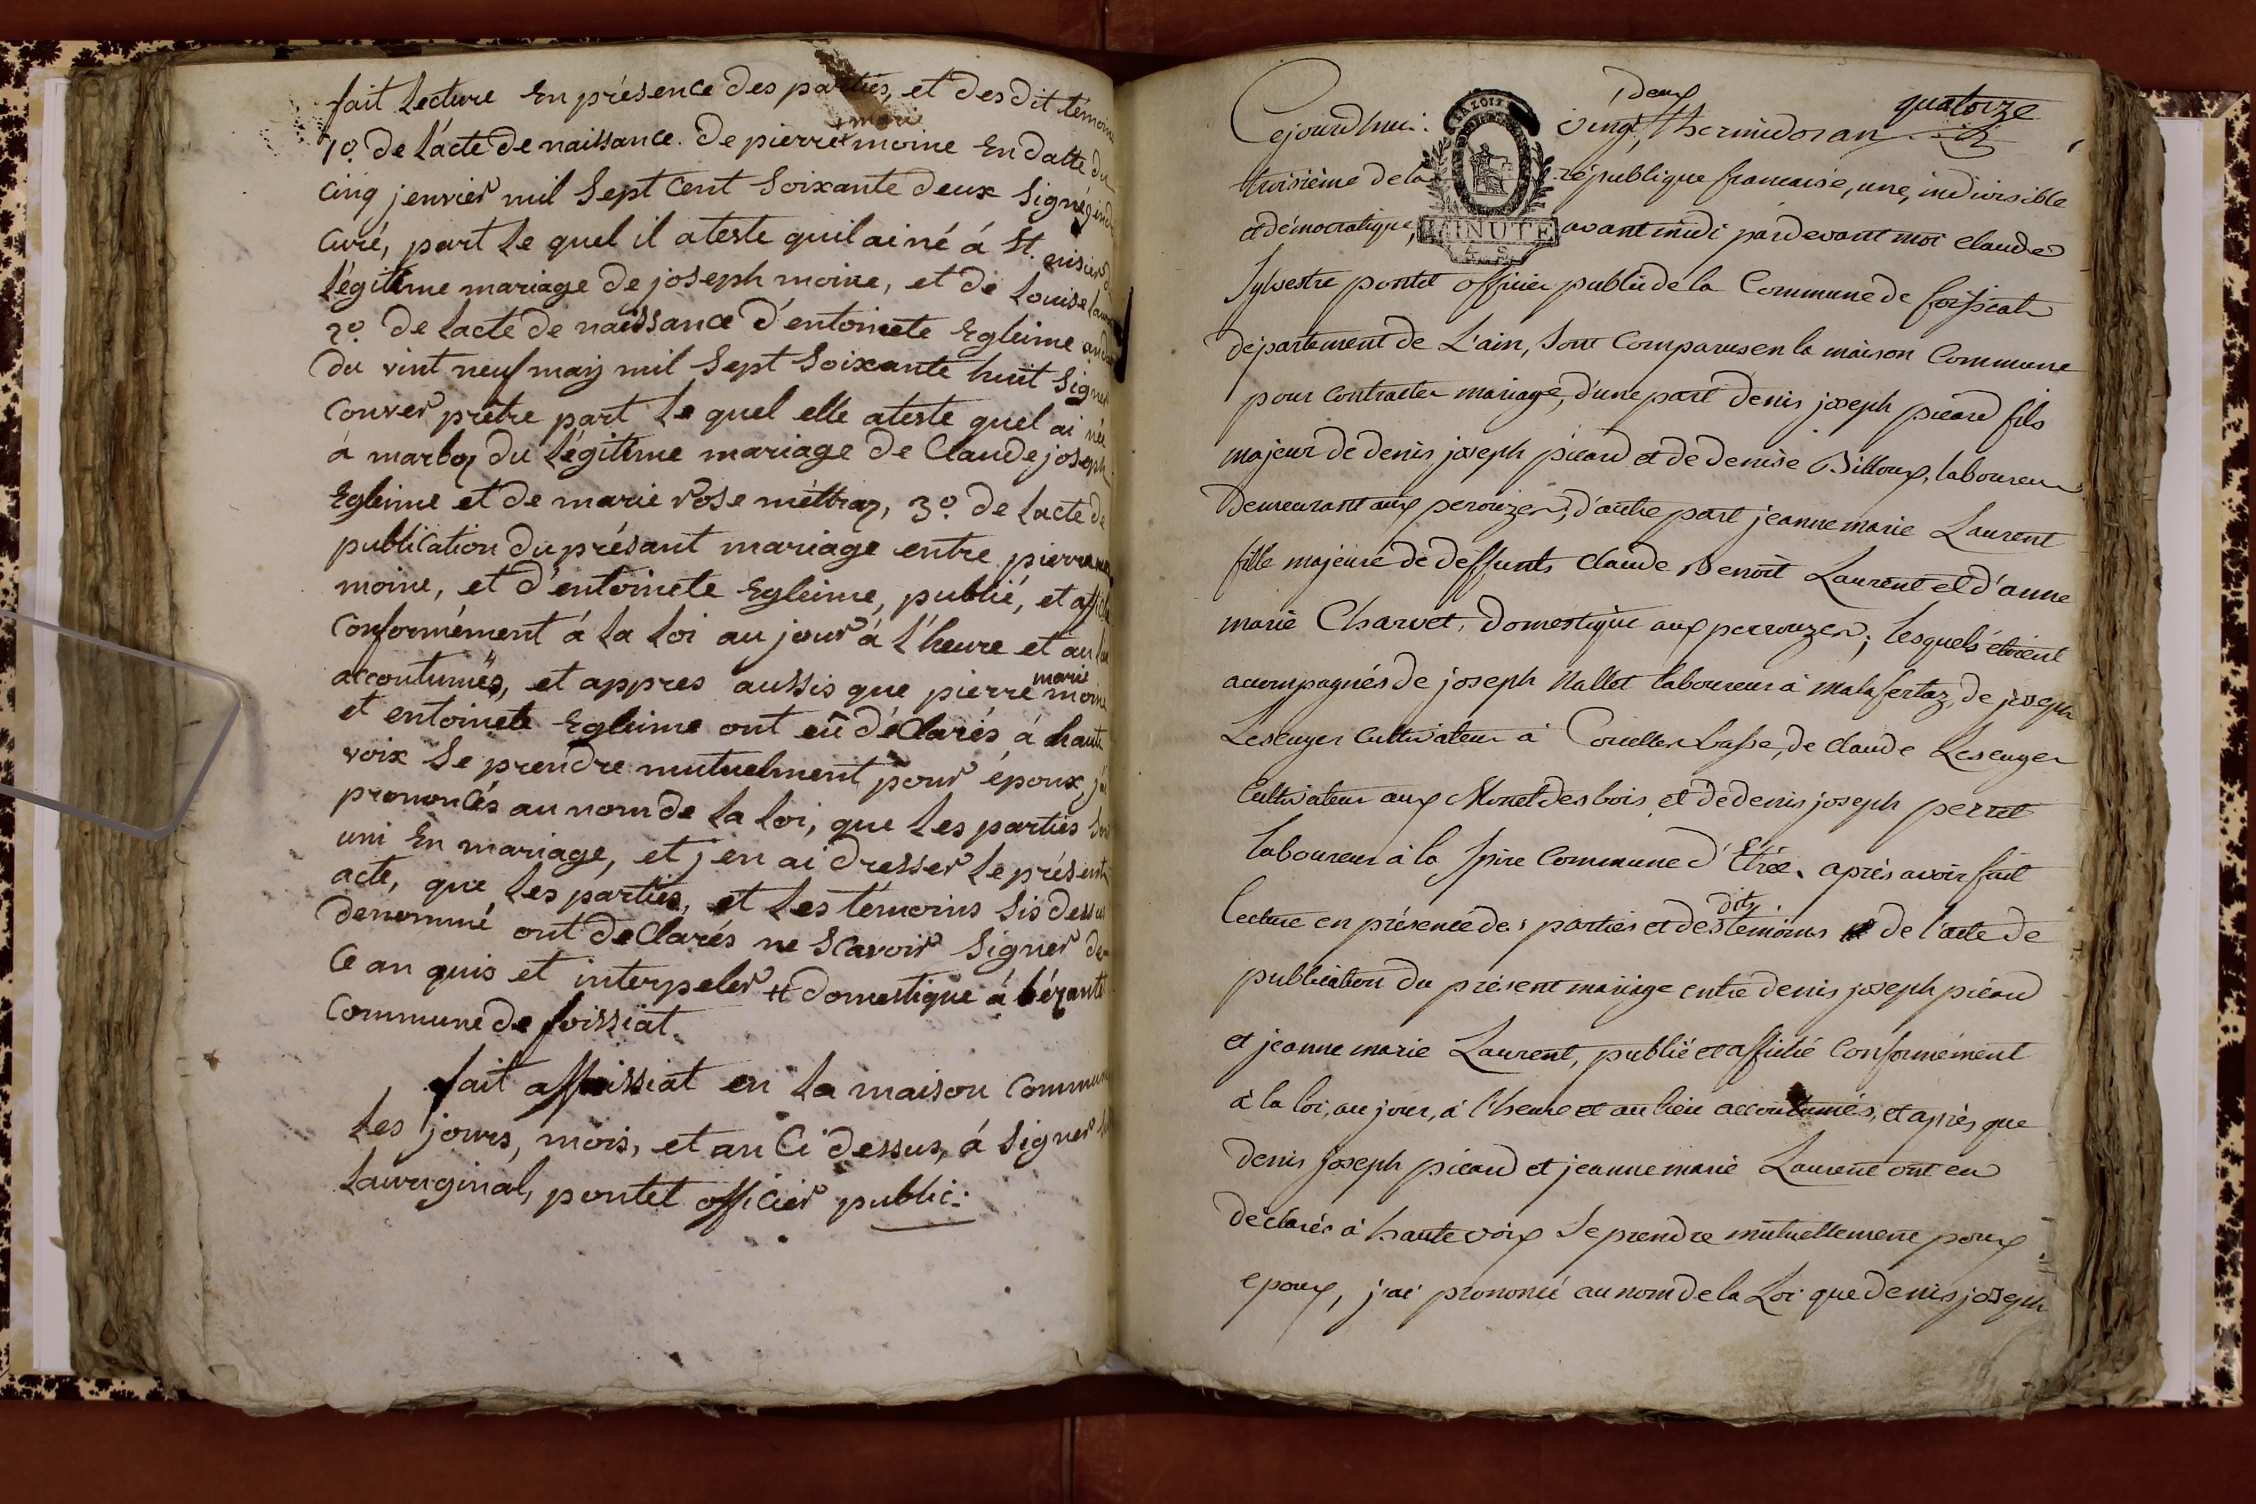 fait Lecture En présence des parties, et des dit témoins
marie
1º. De L'acte de naissance. De pierre moine En datte du
cinq jenvier mil Sept Cent Soixante deux Signé
Curé, part Le quel il ateste quil ai né á St.
Légitime mariage de joseph moine, et de Louise
2º. De Lacte de naissance d'entoinete Egleime
du vint neuf maÿ mil Sept Soixante huit Signé
Couver prêtre part Le quel elle ateste quel ai née
á marboz du Légitime mariage de Claude joseph
Egleime et de marie rose méttraz, 3º. de Lacte de
publication du présant mariage entre pierre
moine, et d'entoinete Egleime, publié, et affiché
Conformément á La Loi au jour á L'heure et au
accoutumés, et appres aussis que pierre marie moine
et entoinete Egleime ont eû déClarés á haute
voix Se prendre mutuelment pour époux, j'ai
prononCés au nom de La Loi, que Les parties
uni En mariage, et j'en ai dresser Le présent
acte, que Les parties, et Les témoins Sis dessus
denommé ont deClarés ne Scavoir Signer de
Ce an quis et interpeler # domestique á bézante
Commune de foissiat.
fait affoissiat en La maison Commune
Les jours, mois, et an Ci dessus, á Signer
Lauriginal, pontet officier public.
quatorze
deux
Cejourdhui vingt thermidor an
troisième de la république francaise, une, indivisible
MINUTE
et démocratique, avant midi pardevant moi Claude
Sylvestre pontet officier public de la Commune de foissiat
département de L'ain, Sont Comparus en la maison Commune
pour Contracter mariage, d'une part denis joseph picard fils
majeur de denis joseph picard et de denise Billoux, laboureur
demeurant aux perouzes, d'autre part jeanne marie Laurent
fille majeure de deffunts Claude Benoit Laurent et d'anne
marie Charvet, domestique aux perrouzes; lesquels étoient
accompagnés de joseph Nallet laboureur à malafertaz, de joseph
Lescuyer Cultivateur à Basse, de Claude Lescuyer
Cultivateur aux Monet des bois et de denis joseph perret
laboureur à la Spire Commune d'Etréé. après avoir fait
lecture en présence des parties et des dits témoins de l'acte de
publication du présent mariage entre denis joseph picard
et jeanne marie Laurent, publié et affiché Conformément
à la loi, au jour, à l'heure et au lieu accoutumés, et après que
denis joseph picard et jeanne marie Laurent ont eu
déclarés à haute voix Se prendre mutuellement pour
epoux, j'ai prononcé au nom de la Loi que denis joseph